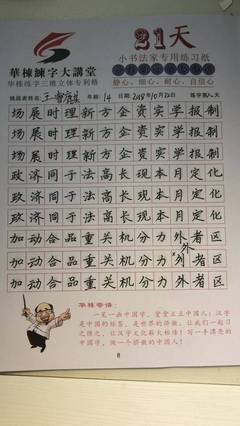 21天
華棟練字大講堂
小书法家专用练习纸
华栋练字三维立体专利格
静心、细心、耐心、自信心
年龄: 14 日期: 2018年10月22日
场展时理新方企资实学报制
场展时理新方企资实学报制
场展时理新方企资实学报制
政济同于法高长现本月定化
政济同于法高长现本月定化
政济同于法高长现本月定化
加动合品重关机分力外者区
外
加动合品重关机分力外者区
加动合品重关机分力外者区
华栋寄语:
一笔一画中国字，堂堂正正中国人；汉字
是中国的标签，是世界的骄傲，让我们一起习
之练之，让汉字文化薪火相传！写一手漂亮的
中国字，做一个骄傲的中国人！
8